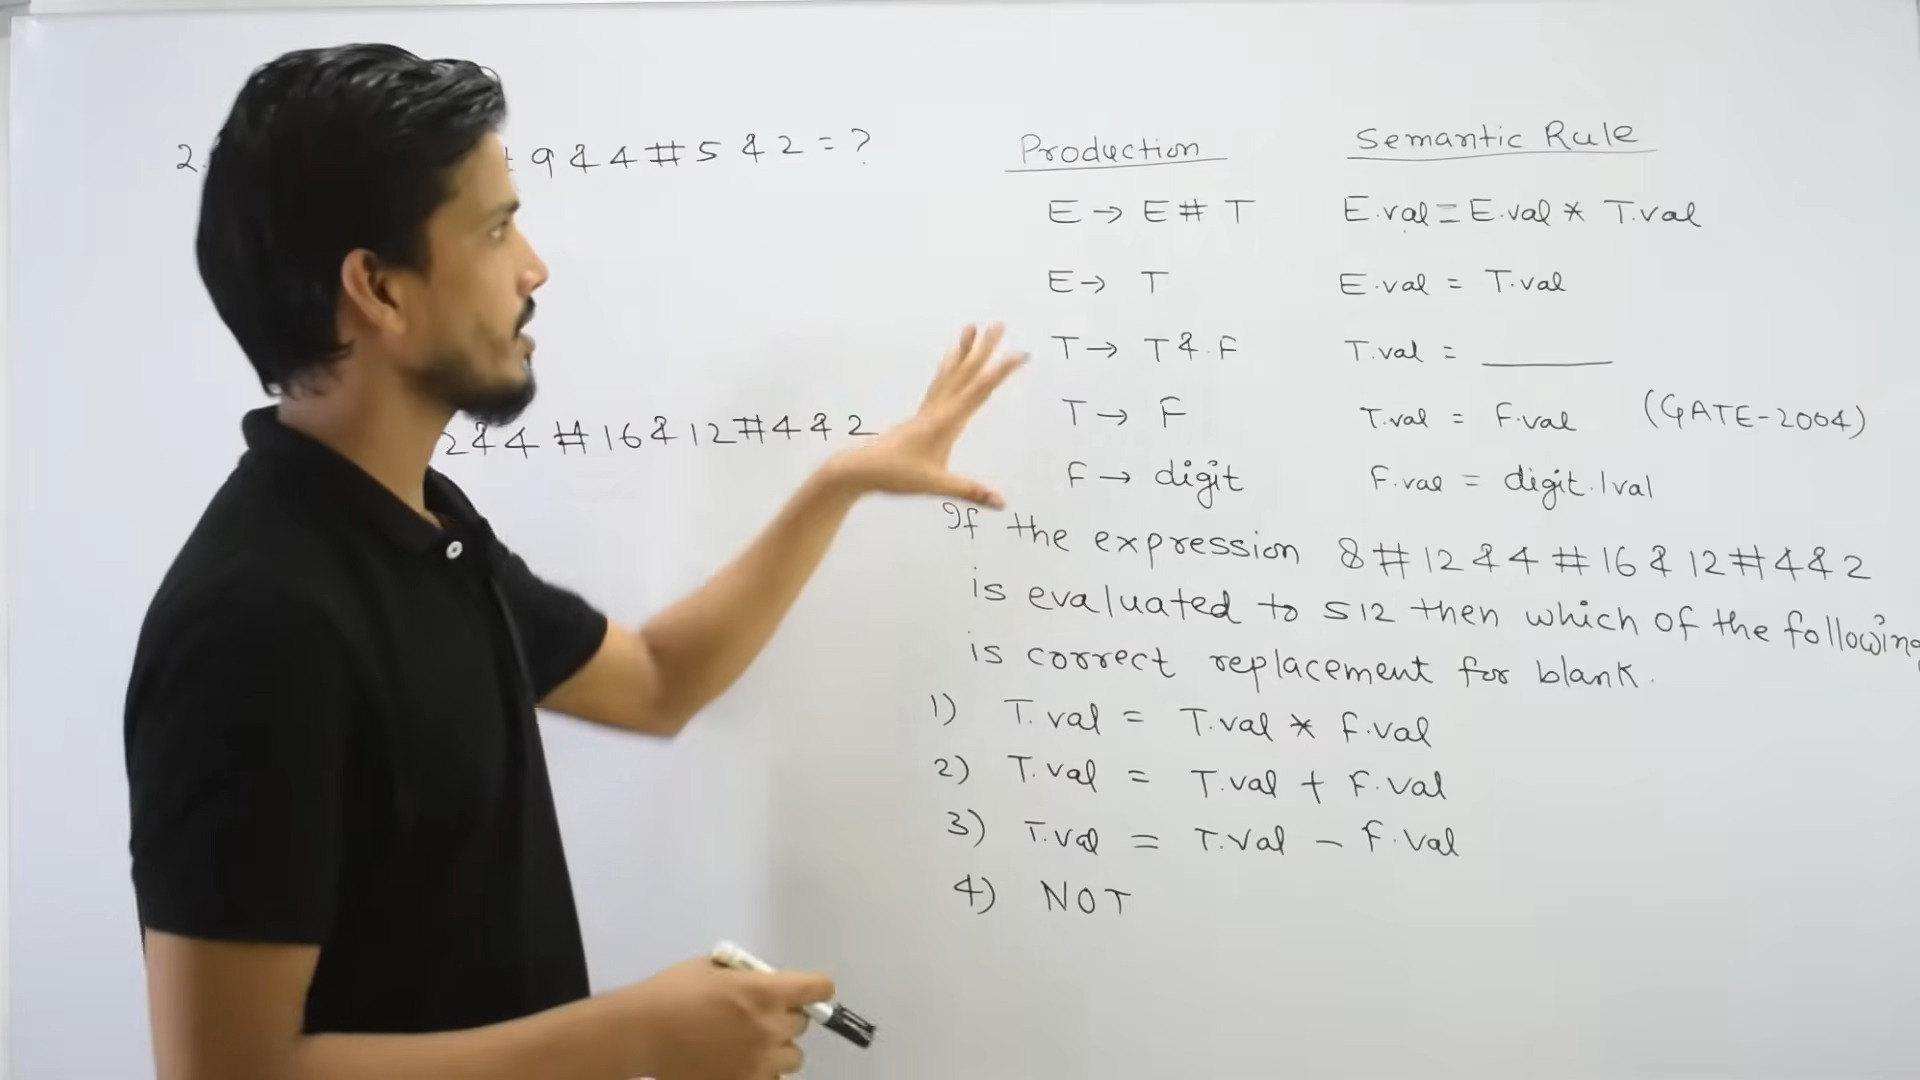 2. 9 & 4 # 5 & 2 = ?
2 & 4 # 16 & 12 # 4 & 2
Production Semantic Rule
E → E # T E.val = E.val * T.val
E → T E.val = T.val
T → T & F T.val = ______
T → F T.val = F.val (GATE-2004)
F → digit F.val = digit.lval
If the expression 8 # 12 & 4 # 16 & 12 # 4 & 2
is evaluated to 512 then which of the following
is correct replacement for blank.
1) T.val = T.val * F.val
2) T.val = T.val + F.val
3) T.val = T.val - F.val
4) NOT